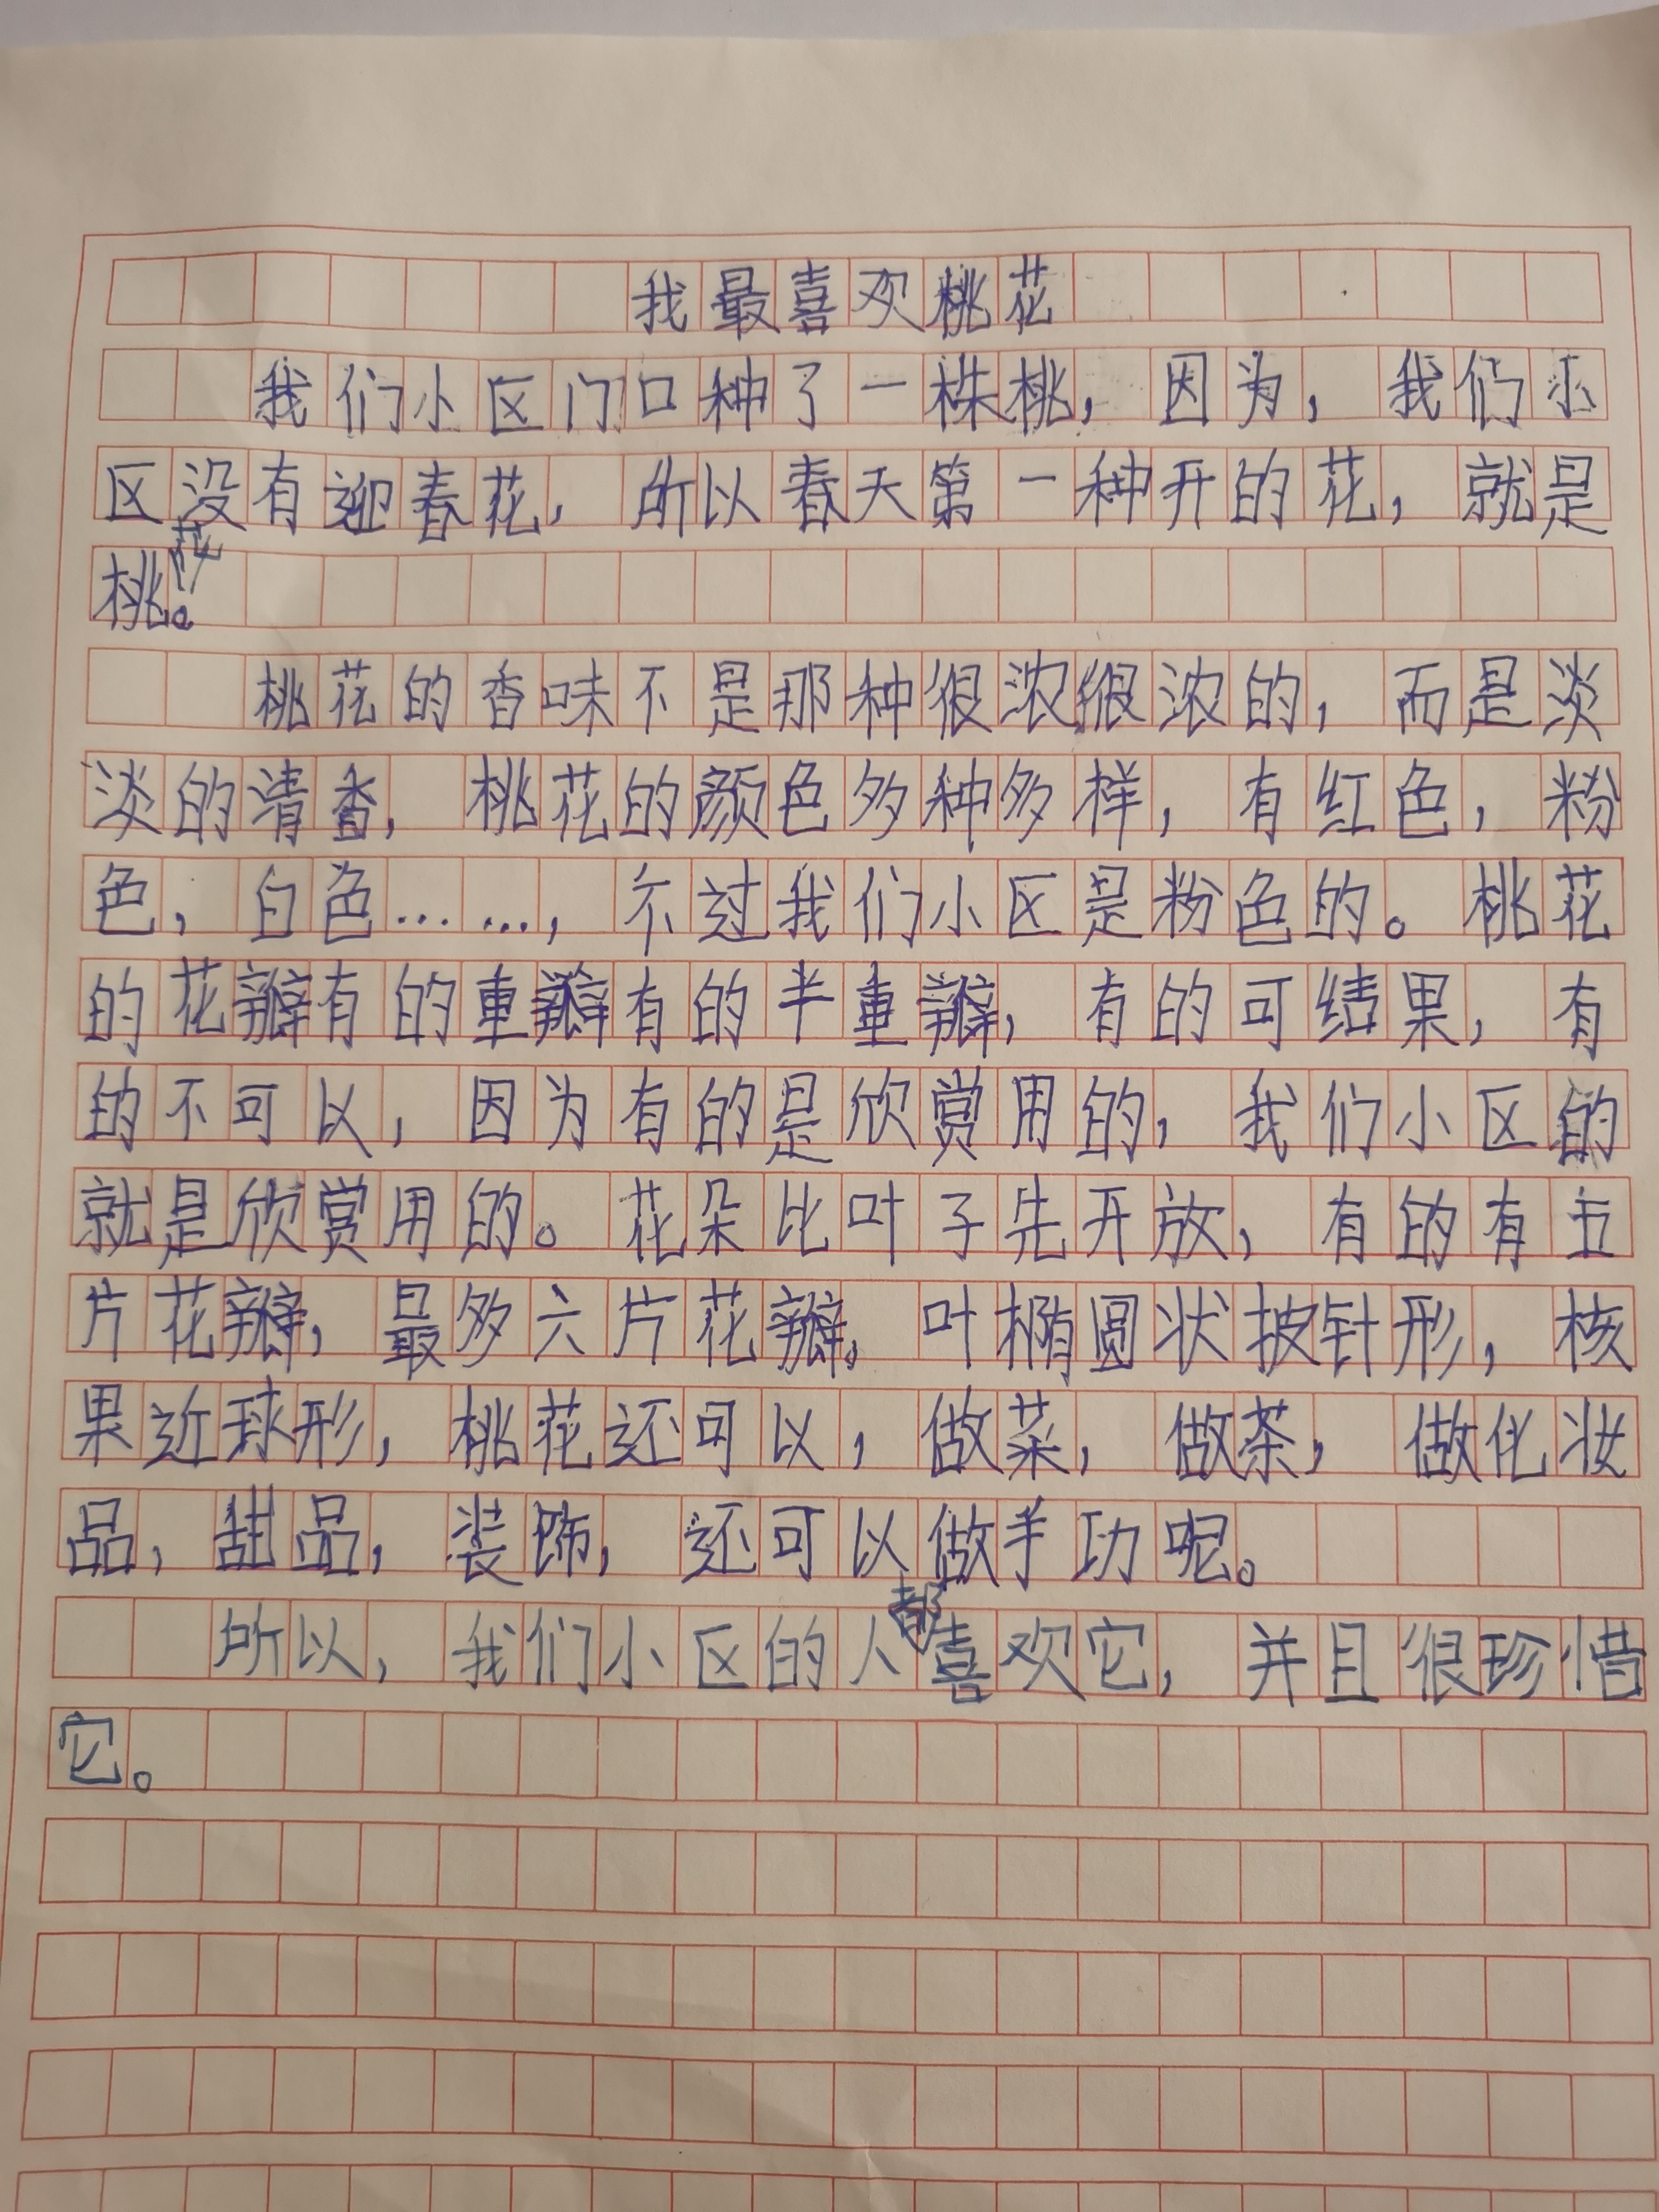 我最喜欢桃花
我们小区门口种了一株桃，因为，我们小
区没有迎春花，所以春天第一种开的花，就是
桃花。
桃花的香味不是那种很浓很浓的，而是淡
淡的清香，桃花的颜色多种多样，有红色，粉
色，白色……，不过我们小区是粉色的。桃花
的花瓣有的重瓣有的半重瓣，有的可结果，有
的不可以，因为有的是欣赏用的，我们小区的
就是欣赏用的。花朵比叶子先开放，有的有五
片花瓣，最多六片花瓣。叶椭圆状披针形，核
果近球形，桃花还可以，做菜，做茶，做化妆
品，甜品，装饰，还可以做手功呢。
所以，我们小区的人都喜欢它，并且很珍惜
它。